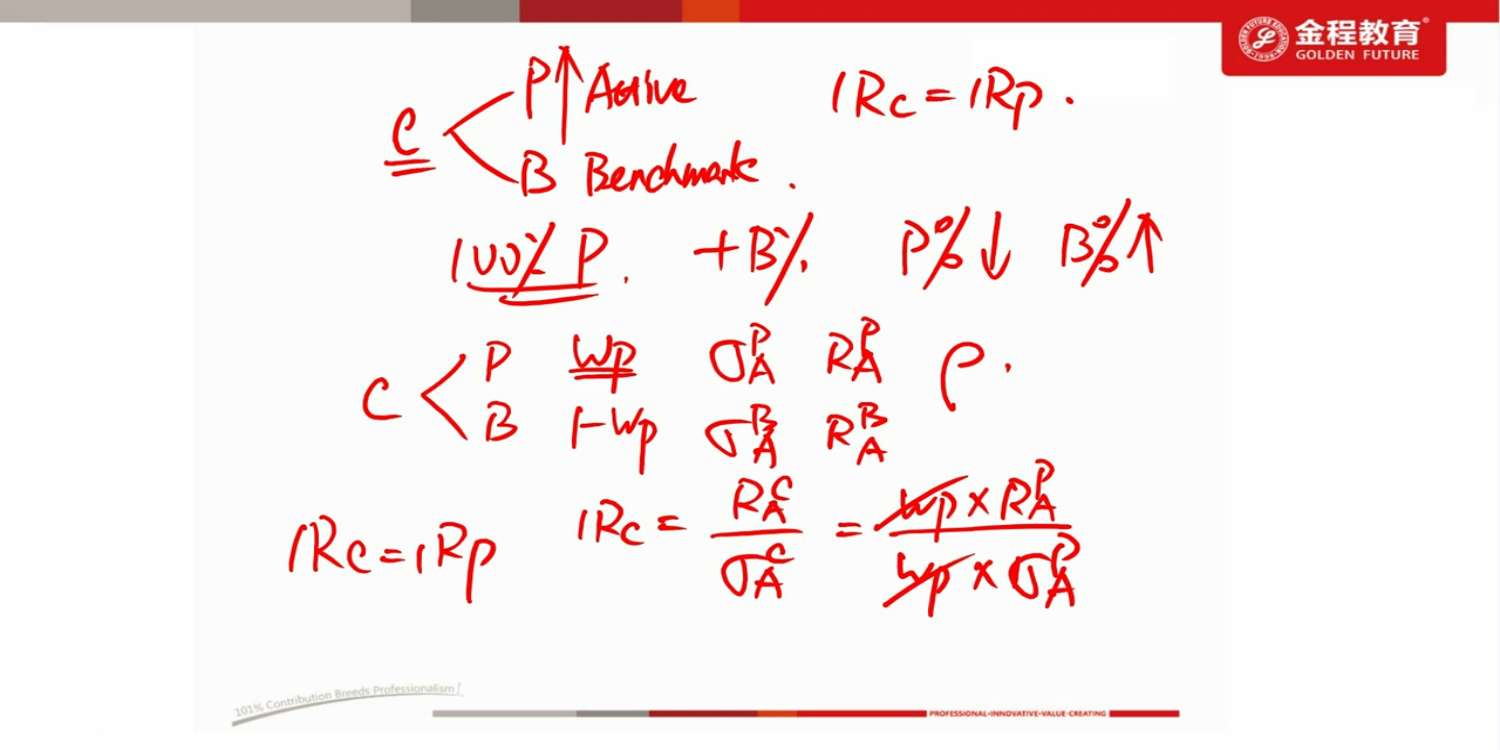 金程教育®
GOLDEN FUTURE
C < P↑ Active
B Benchmark.
IRc = IRp.
100% P. +B% P%↓ B%↑
C < P Wp σ_A^P R_A^P ρ.
B 1-Wp σ_A^B R_A^B
IRc = IRp IRc = R_A^C / σ_A^C = Wp × R_A^P / Wp × σ_A^P
101% Contribution Breeds Professionalism!
PROFESSIONAL•INNOVATIVE•VALUE-CREATING